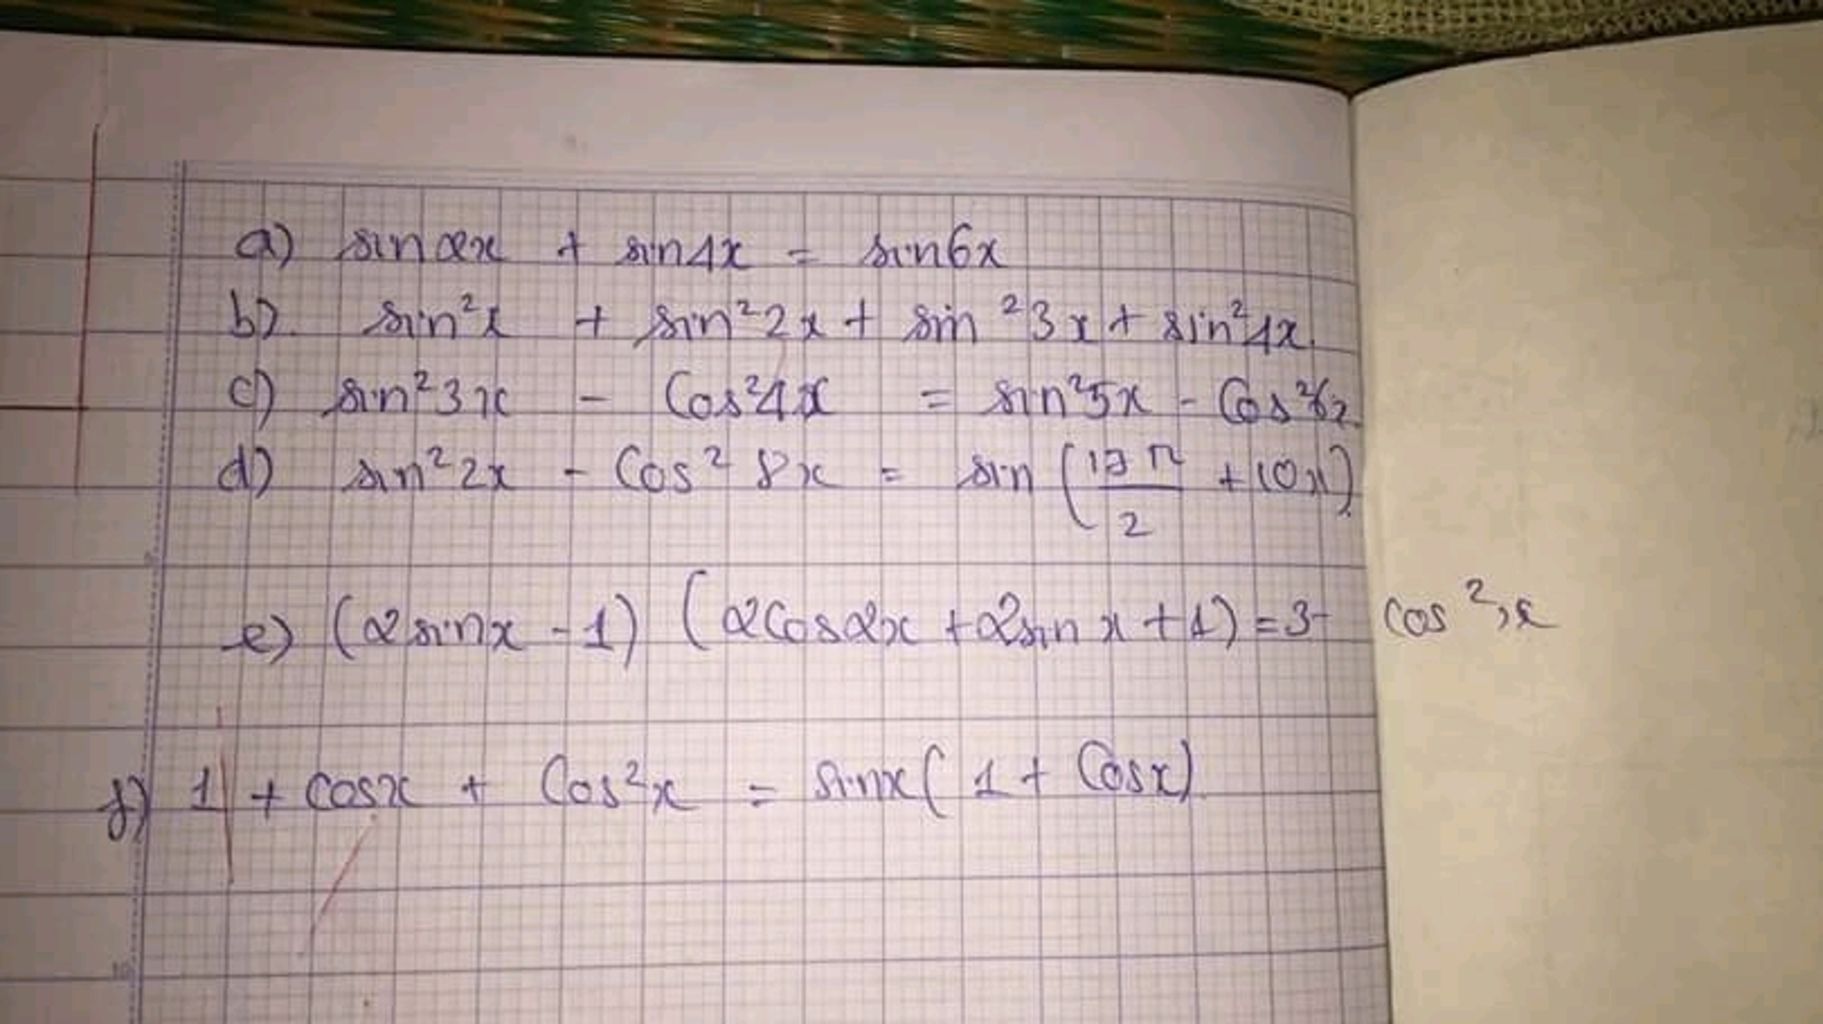 a) sin2x + sin4x = sin6x
b). sin²x + sin²2x + sin²3x + sin²4x.
c) sin²3x - Cos²4x = sin²5x - Cos²6x
d) sin²2x - Cos²8x = sin (17π/2 + 10x).
e) (2sinx - 1) (2Cos2x + 2sinx + 1) = 3 - cos²x
f) 1 + cosx + Cos²x = sinx( 1 + Cosx).